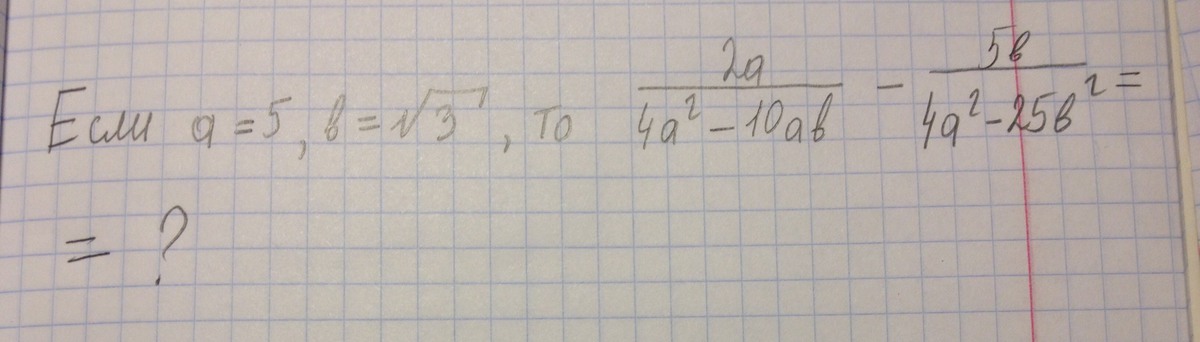 Если a = 5, в = √3, то 2a/(4a² − 10aв) − 5в/(4a² − 25в²) =
= ?